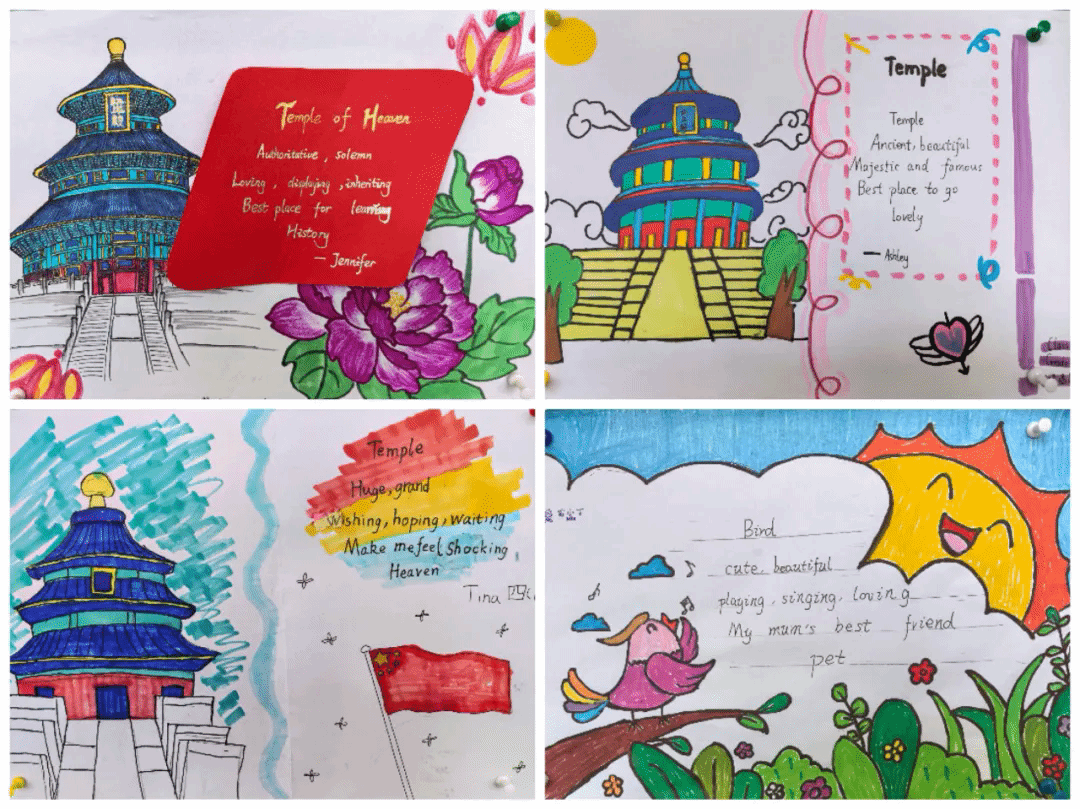 Temple of Heaven
Authoritative, solemn
Loving, displaying, inheriting
Best place for learning
History
— Jennifer
Temple
Temple
Ancient, beautiful
Majestic and famous
Best place to go
lovely
— Ashley
Class
Temple
Huge, grand
Wishing, hoping, Waiting
Make me feel Shocking
Heaven
Tina 四
Bird
cute, beautiful
playing, singing, loving
My mum's best friend
pet